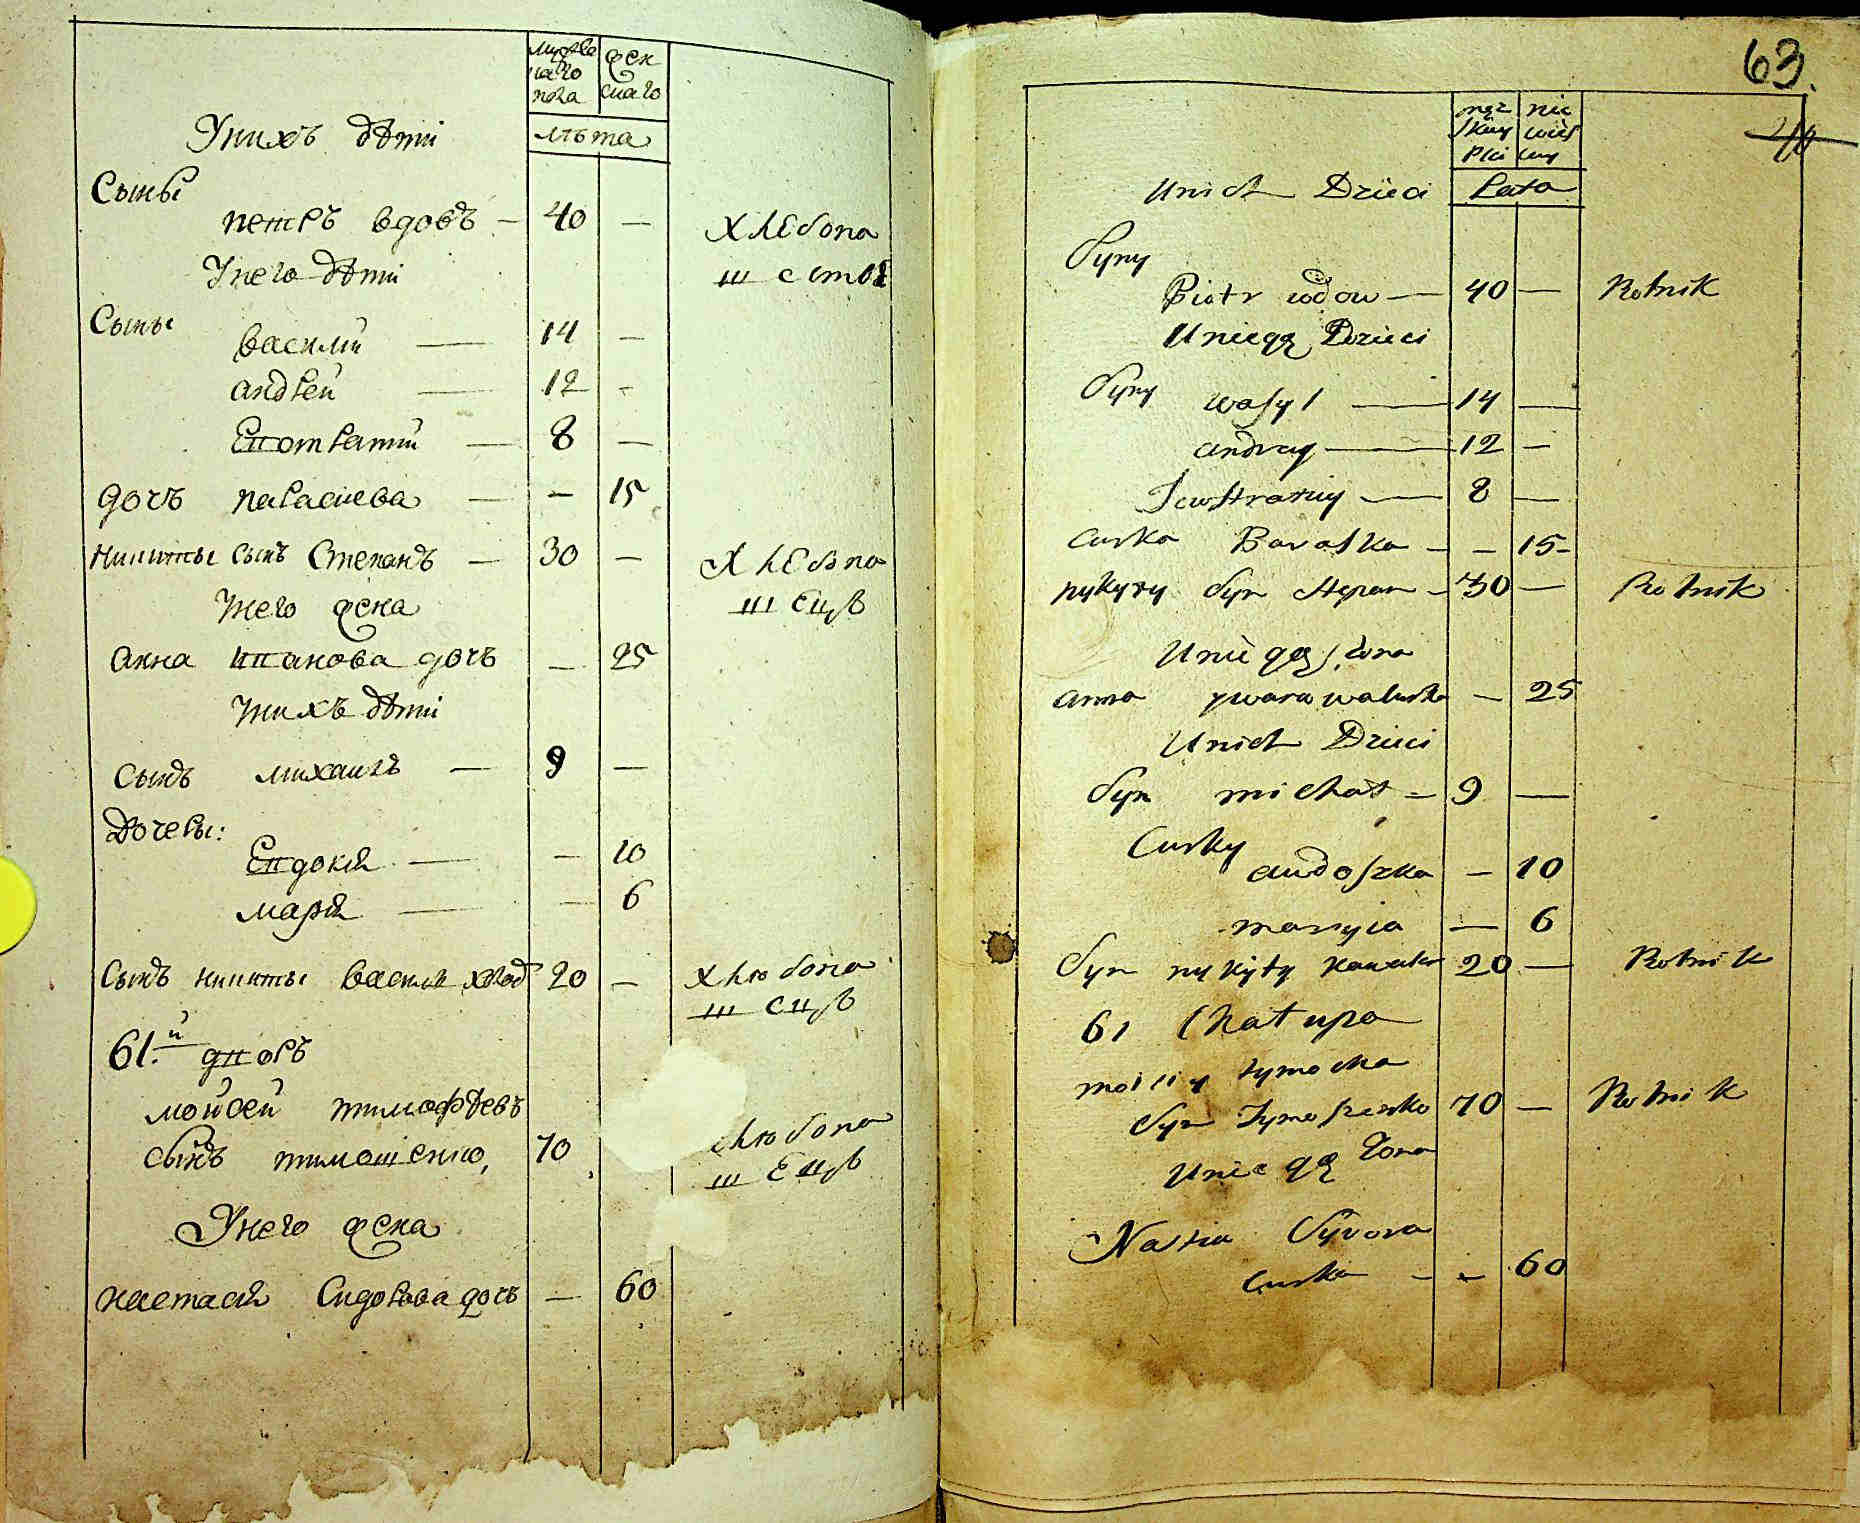 мужеска
го
пола
жен
скаго
лѣта
Унихъ дѣти
Сыны
петръ вдовъ — 40 — хлебопа
шество
Унего дѣти
Сыны
василий — 14 —
андрей — 12 -
Евстратий — 8 —
дочъ параскева — — 15
никиты сынъ Степанъ — 30 — хлебопа
шецъ
Унего жена
анна иванова дочъ — 25
Унихъ дѣти
Сынъ михаилъ — 9 —
Дочеры:
Евдокия — — 10
мария — — 6
Сынъ никиты василий холос 20 — хлѣбопа
шецъ
61.й дворъ
мойсей тимофѣевъ
сынъ тимошенко, 70 хлѣбопа
шецъ
Унего жена
настасия Сидорова дочъ — 60
63.
męz
skiey
Płci
nie
wies
ciey
Lata
Unich Dzieci
Syny
Piotr wdow — 40 — Rolnik
Uniego Dzieci
Syny wasyl — 14 —
andrey — 12 —
Jewstratiy — 8 —
Curka Paraska — — 15 -
nykyty Syn Stepan — 30 — Rolnik
Uniego żona
anna ywana walurka — 25
Unich Dzieci
Syn michał — 9 —
Curky
audoszka — 10
maryia — 6
Syn nykyty kawaler 20 — Rolnik
61 Chałupa
moisiy tymocha
Syn Tymoszenko 70 — Rolnik
Uniego żona
Nastia Sydora
Curka — - 60